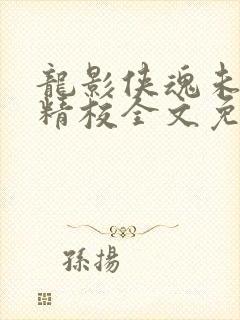 龍影俠魂未
精校全文免
孫揚